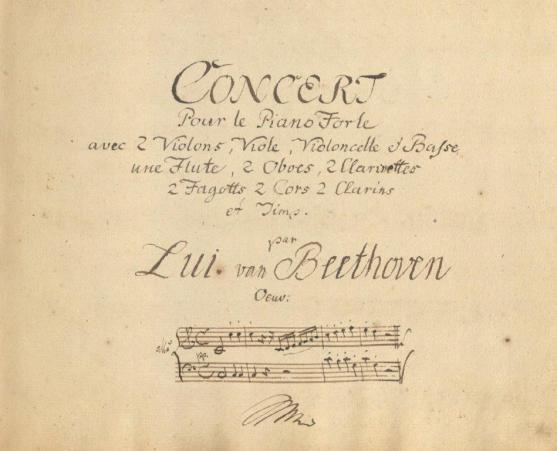 CONCERT
Pour le Piano Forte
avec 2 Violons, Viole, Violoncelle & Basse
une Flute, 2 Oboes, 2 Clarinettes
2 Fagotts 2 Cors 2 Clarins
et Timp.
par
Lui. van Beethoven
Oeuv:
pp.